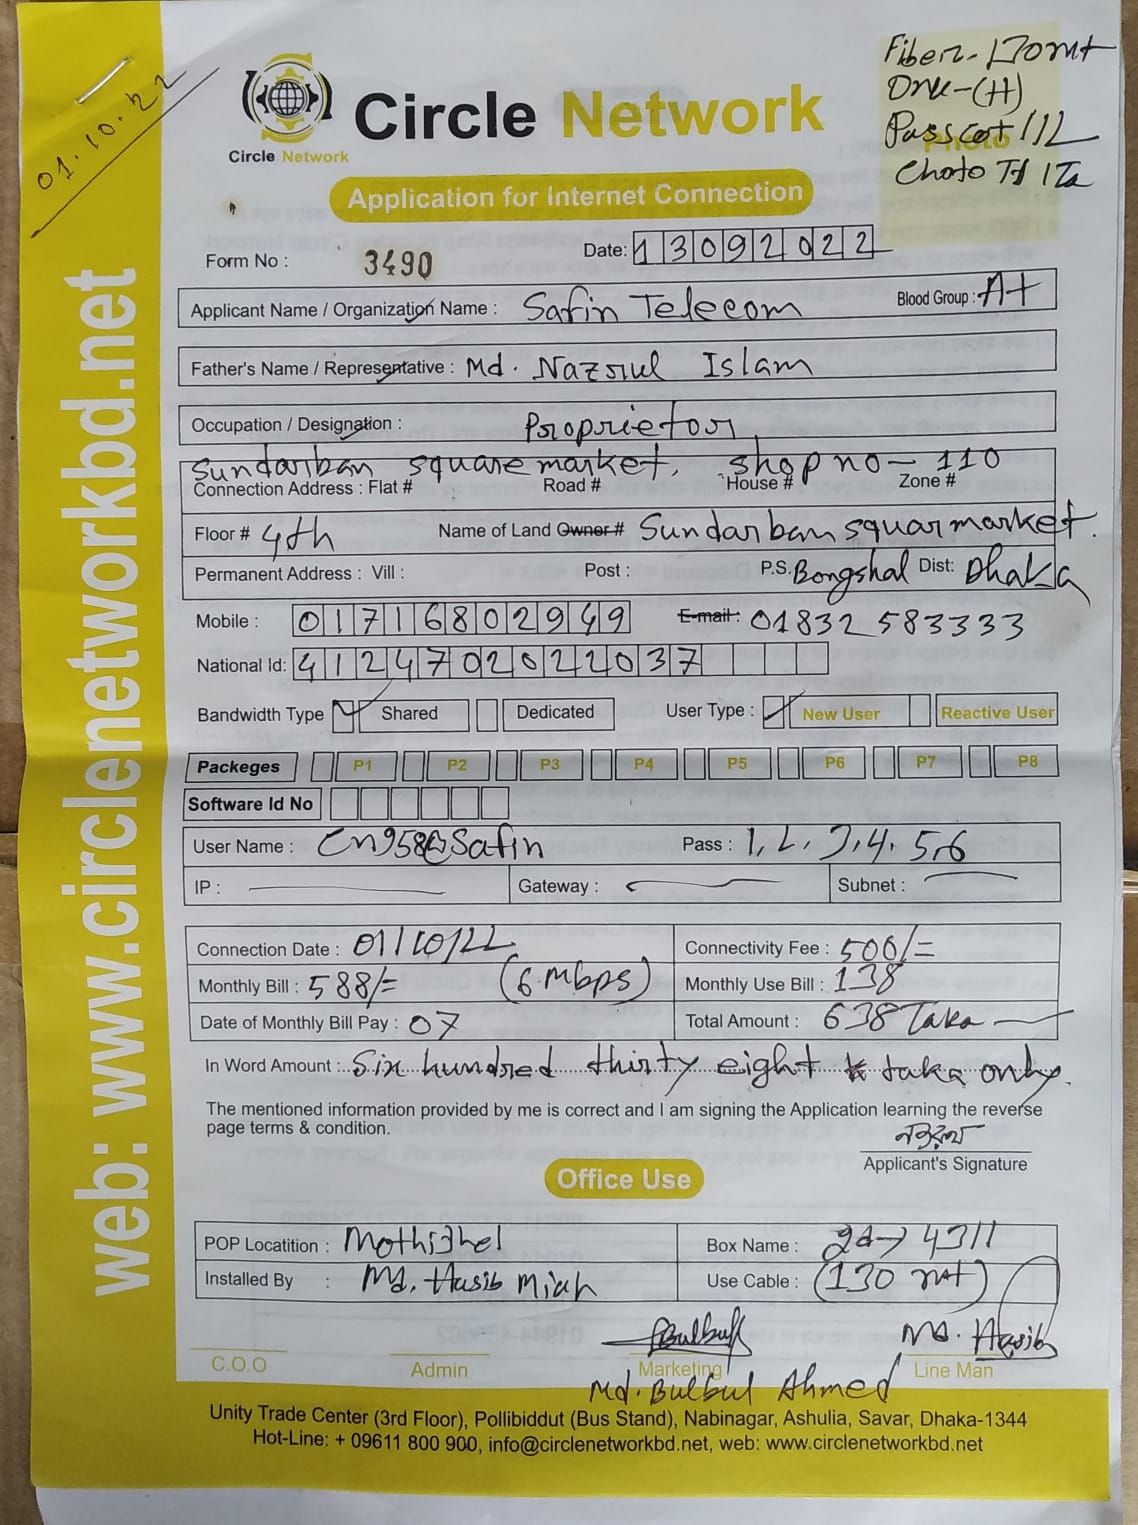 01.10.22
Circle Network
Circle Network
Photo
Application for Internet Connection
Form No : 3490
Date: 13092022
Applicant Name / Organization Name : Safin Telecom Blood Group : A+
Father's Name / Representative : Md. Nazrul Islam
Occupation / Designation : Proprietor
Sundarban square market, shop no - 110
Connection Address : Flat # Road # House # Zone #
Floor # 4th Name of Land Owner # Sundarban squar market.
Permanent Address : Vill : Post : P.S. Bongshal Dist: Dhaka
Mobile : 01716802949 E-mail: 01832583333
National Id: 4124702022037
Bandwidth Type Shared Dedicated User Type : New User Reactive User
Packeges P1 P2 P3 P4 P5 P6 P7 P8
Software Id No
User Name : Cn958@Safin Pass : 1,2,3,4,5,6
IP : Gateway : Subnet :
Connection Date : 01/10/22 Connectivity Fee : 500/=
Monthly Bill : 588/= (6 Mbps) Monthly Use Bill : 138
Date of Monthly Bill Pay : 07 Total Amount : 638 Taka
In Word Amount : Six hundred thirty eight taka only.
The mentioned information provided by me is correct and I am signing the Application learning the reverse
page terms & condition.
Applicant's Signature
Office Use
POP Locatition : Mothijhel Box Name : 4311
Installed By : Md. Hasib Miah Use Cable : (130 mt)
Bulbul Md. Hasib
C.O.O Admin Marketing Line Man
Md. Bulbul Ahmed
Unity Trade Center (3rd Floor), Pollibiddut (Bus Stand), Nabinagar, Ashulia, Savar, Dhaka-1344
Hot-Line: + 09611 800 900, info@circlenetworkbd.net, web: www.circlenetworkbd.net
web: www.circlenetworkbd.net